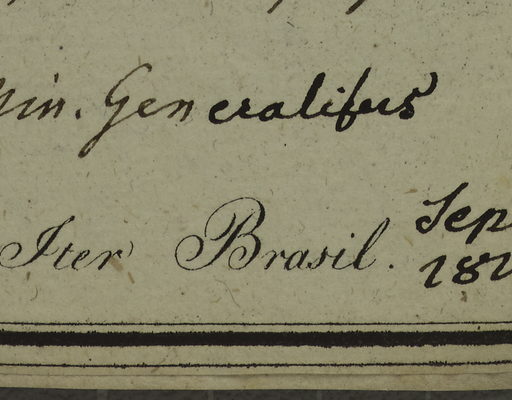 Min. Generalibus
Iter Brasil. Sep
182